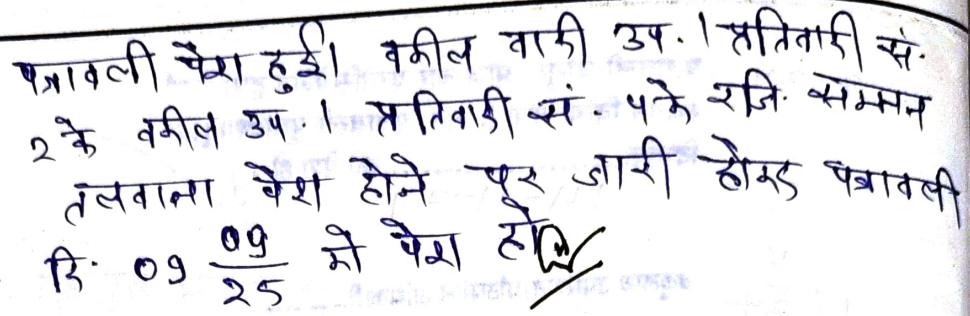 पत्रावली पेश हुई। वकील वादी उप.। प्रतिवादी सं.
2 के वकील उप.। प्रतिवादी सं. 4 के रजि. सम्मन
तलवाना पेश होने पर जारी होकर पत्रावली
दि. 09 09/25 को पेश हो